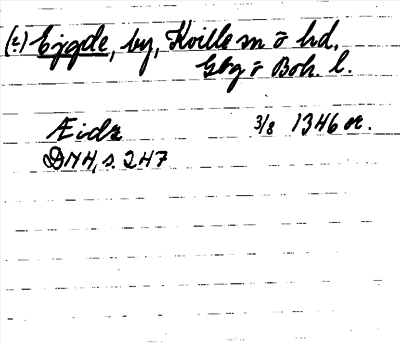 (:) Ejgde, by, Kville sn o hd,
Gbg o Boh. l.
Æidz 3/8 1346 or.
DN 4, s. 247